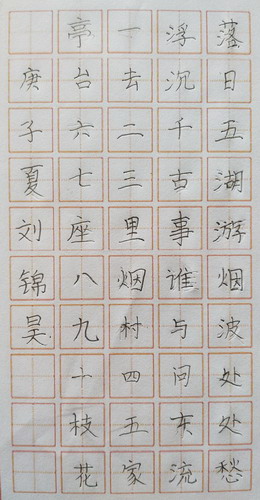 落日五湖游烟波处处愁
浮沉千古事谁与问东流
一去二三里烟村四五家
亭台六七座八九十枝花
庚子夏刘锦昊